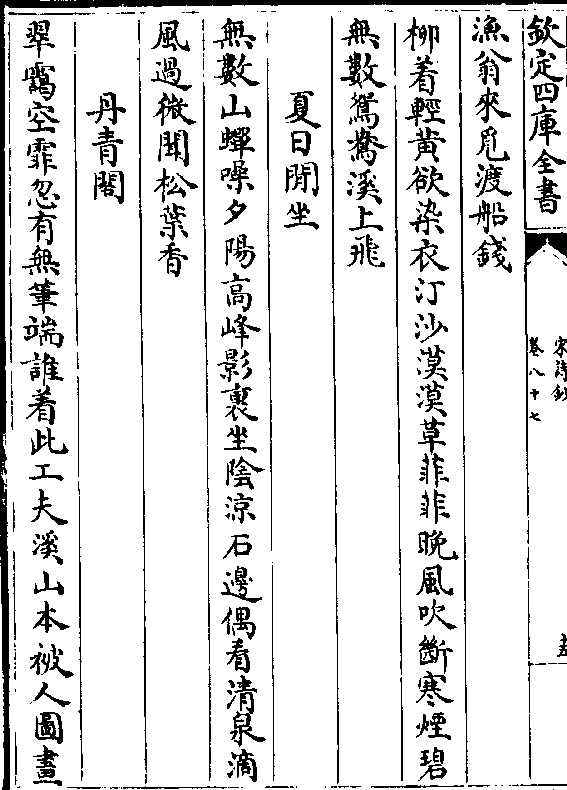 欽定四庫全書
宋詩鈔
卷八十七
漁翁來覓渡船錢
柳着輕黄欲染衣汀沙漠漠草菲菲晚風吹斷寒煙碧
無數鴛鴦溪上飛
夏日閒坐
無數山蟬噪夕陽高峰影裏坐陰涼石邊偶看清泉滴
風過微聞松葉香
丹青閣
翠靄空霏忽有無筆端誰着此工夫溪山本被人圖畫